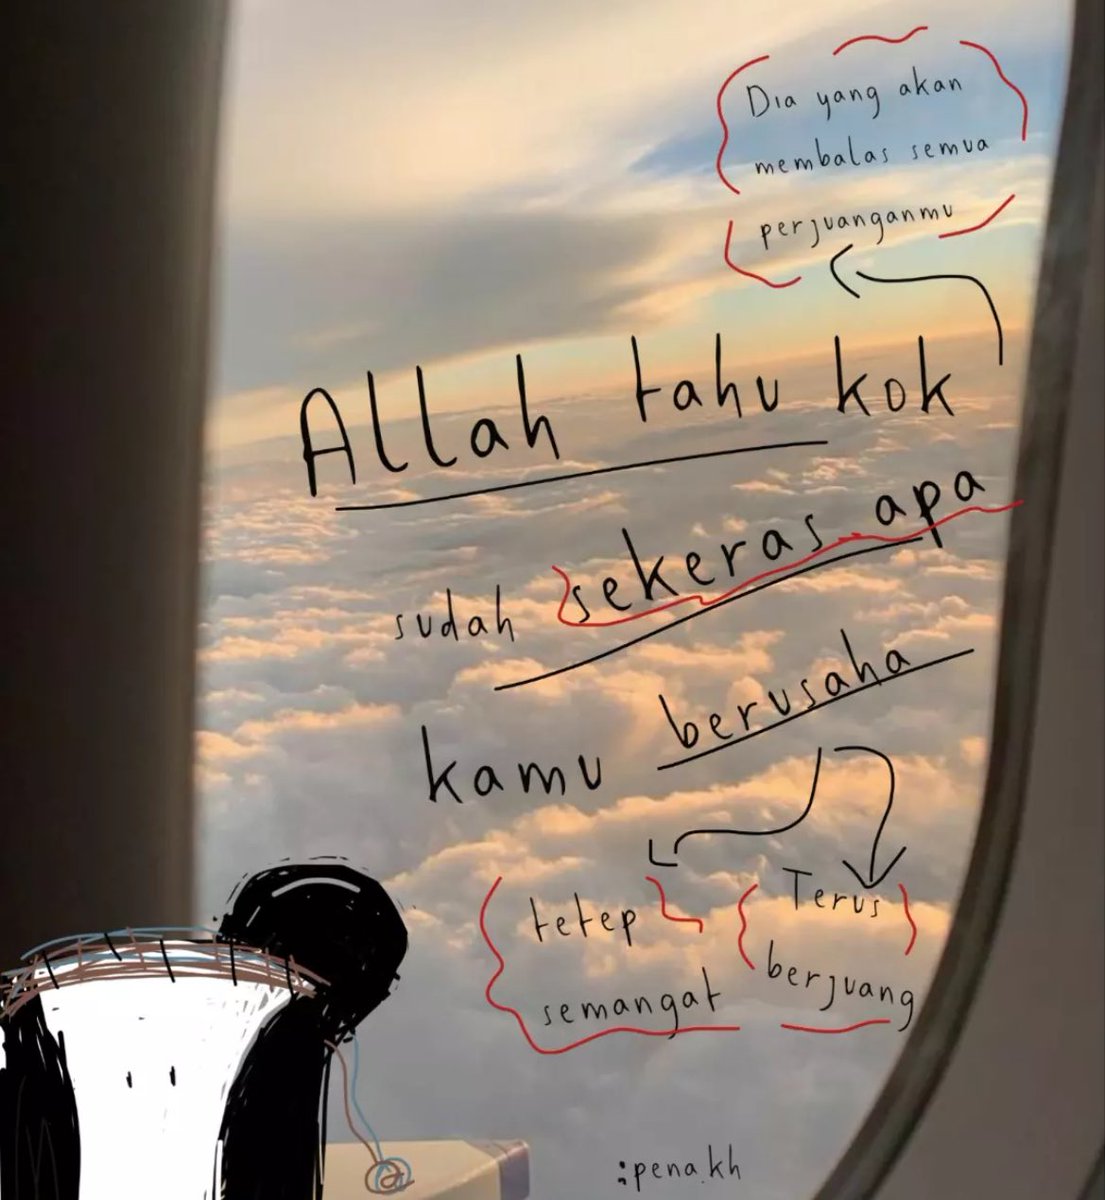 Dia yang akan
membalas semua
perjuanganmu
Allah tahu kok
sudah sekeras apa
kamu berusaha
tetep
semangat
Terus
berjuang
:pena.kh